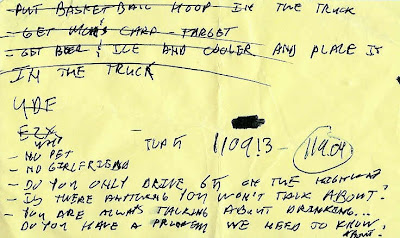 - PUT BASKETBALL HOOP IN THE TRUCK
- GET MOM'S CARD - TARGET
- GET BEER & ICE AND COOLER AND PLACE IT
IN THE TRUCK
YDE
EZX
WHY
TUA 5 11093- 11904
- NO PET
- NO GIRLFRIEND
- DO YOU ONLY DRIVE 65 ON THE HIGHWAY?
- IS THERE ANYTHING YOU WON'T TALK ABOUT?
- YOU ARE ALWAYS TALKING ABOUT DRINKING...
DO YOU HAVE A PROBLEM WE NEED TO KNOW
ABOUT.